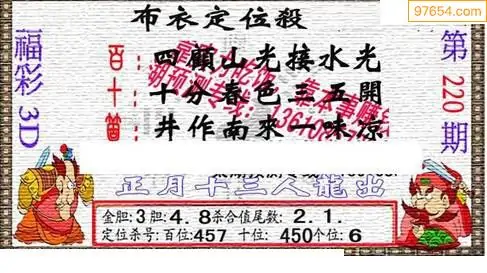 97654.com
布衣定位殺
福彩3D
第220期
百：四顧山光接水光
十：十分春色三五開
個：井作南來一味凉
正月十三人龍出
金胆:3胆:4.8杀合值尾数:2.1.
定位杀号:百位:457 十位:450个位:6